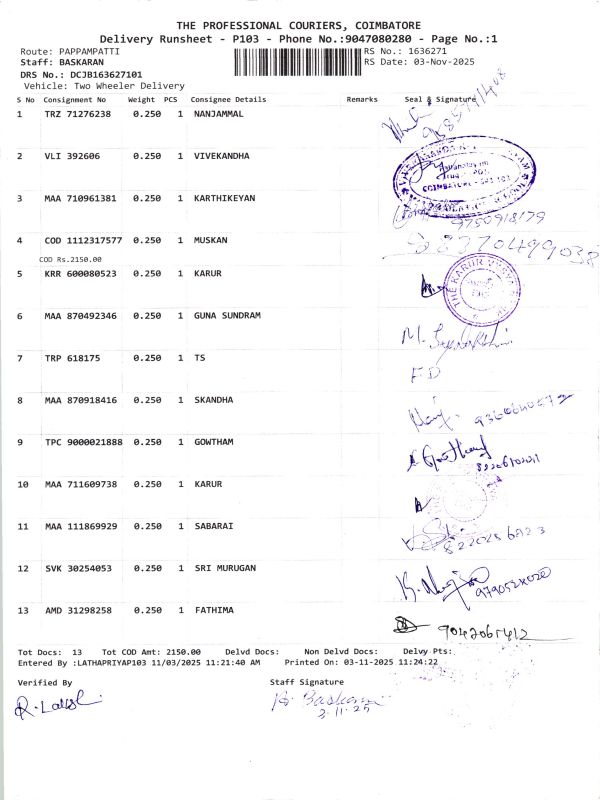 THE PROFESSIONAL COURIERS, COIMBATORE
Delivery Runsheet - P103 - Phone No.:9047080280 - Page No.:1
Route: PAPPAMPATTI RS No.: 1636271
Staff: BASKARAN RS Date: 03-Nov-2025
DRS No.: DCJB163627101
Vehicle: Two Wheeler Delivery
S No Consignment No Weight PCS Consignee Details Remarks Seal & Signature
1 TRZ 71276238 0.250 1 NANJAMMAL
2 VLI 392606 0.250 1 VIVEKANDHA
COIMBATORE
3 MAA 710961381 0.250 1 KARTHIKEYAN
9750918179
4 COD 1112317577 0.250 1 MUSKAN
COD Rs.2150.00
5 KRR 600080523 0.250 1 KARUR
THE KARUR VYSYA BANK
6 MAA 870492346 0.250 1 GUNA SUNDRAM
7 TRP 618175 0.250 1 TS
FD
8 MAA 870918416 0.250 1 SKANDHA
9 TPC 9000021888 0.250 1 GOWTHAM
10 MAA 711609738 0.250 1 KARUR
11 MAA 111869929 0.250 1 SABARAI
12 SVK 30254053 0.250 1 SRI MURUGAN
13 AMD 31298258 0.250 1 FATHIMA
9042061412
Tot Docs: 13 Tot COD Amt: 2150.00 Delvd Docs: Non Delvd Docs: Delvy Pts:
Entered By :LATHAPRIYAP103 11/03/2025 11:21:40 AM Printed On: 03-11-2025 11:24:22
Verified By Staff Signature
B. Baskaran
3-11-25